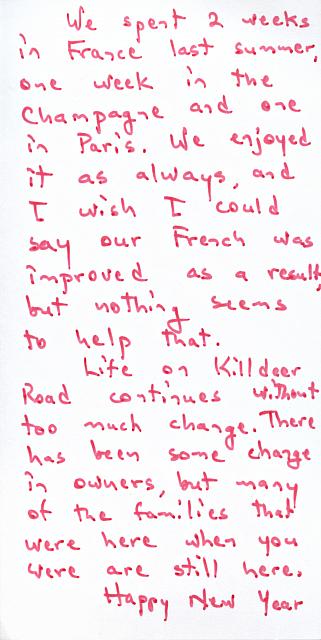 We spent 2 weeks
in France last summer,
one week in the
Champagne and one
in Paris. We enjoyed
it as always, and
I wish I could
say our French was
improved as a result,
but nothing seems
to help that.
Life on Killdeer
Road continues without
too much change. There
has been some change
in owners, but many
of the families that
were here when you
were are still here.
Happy New Year